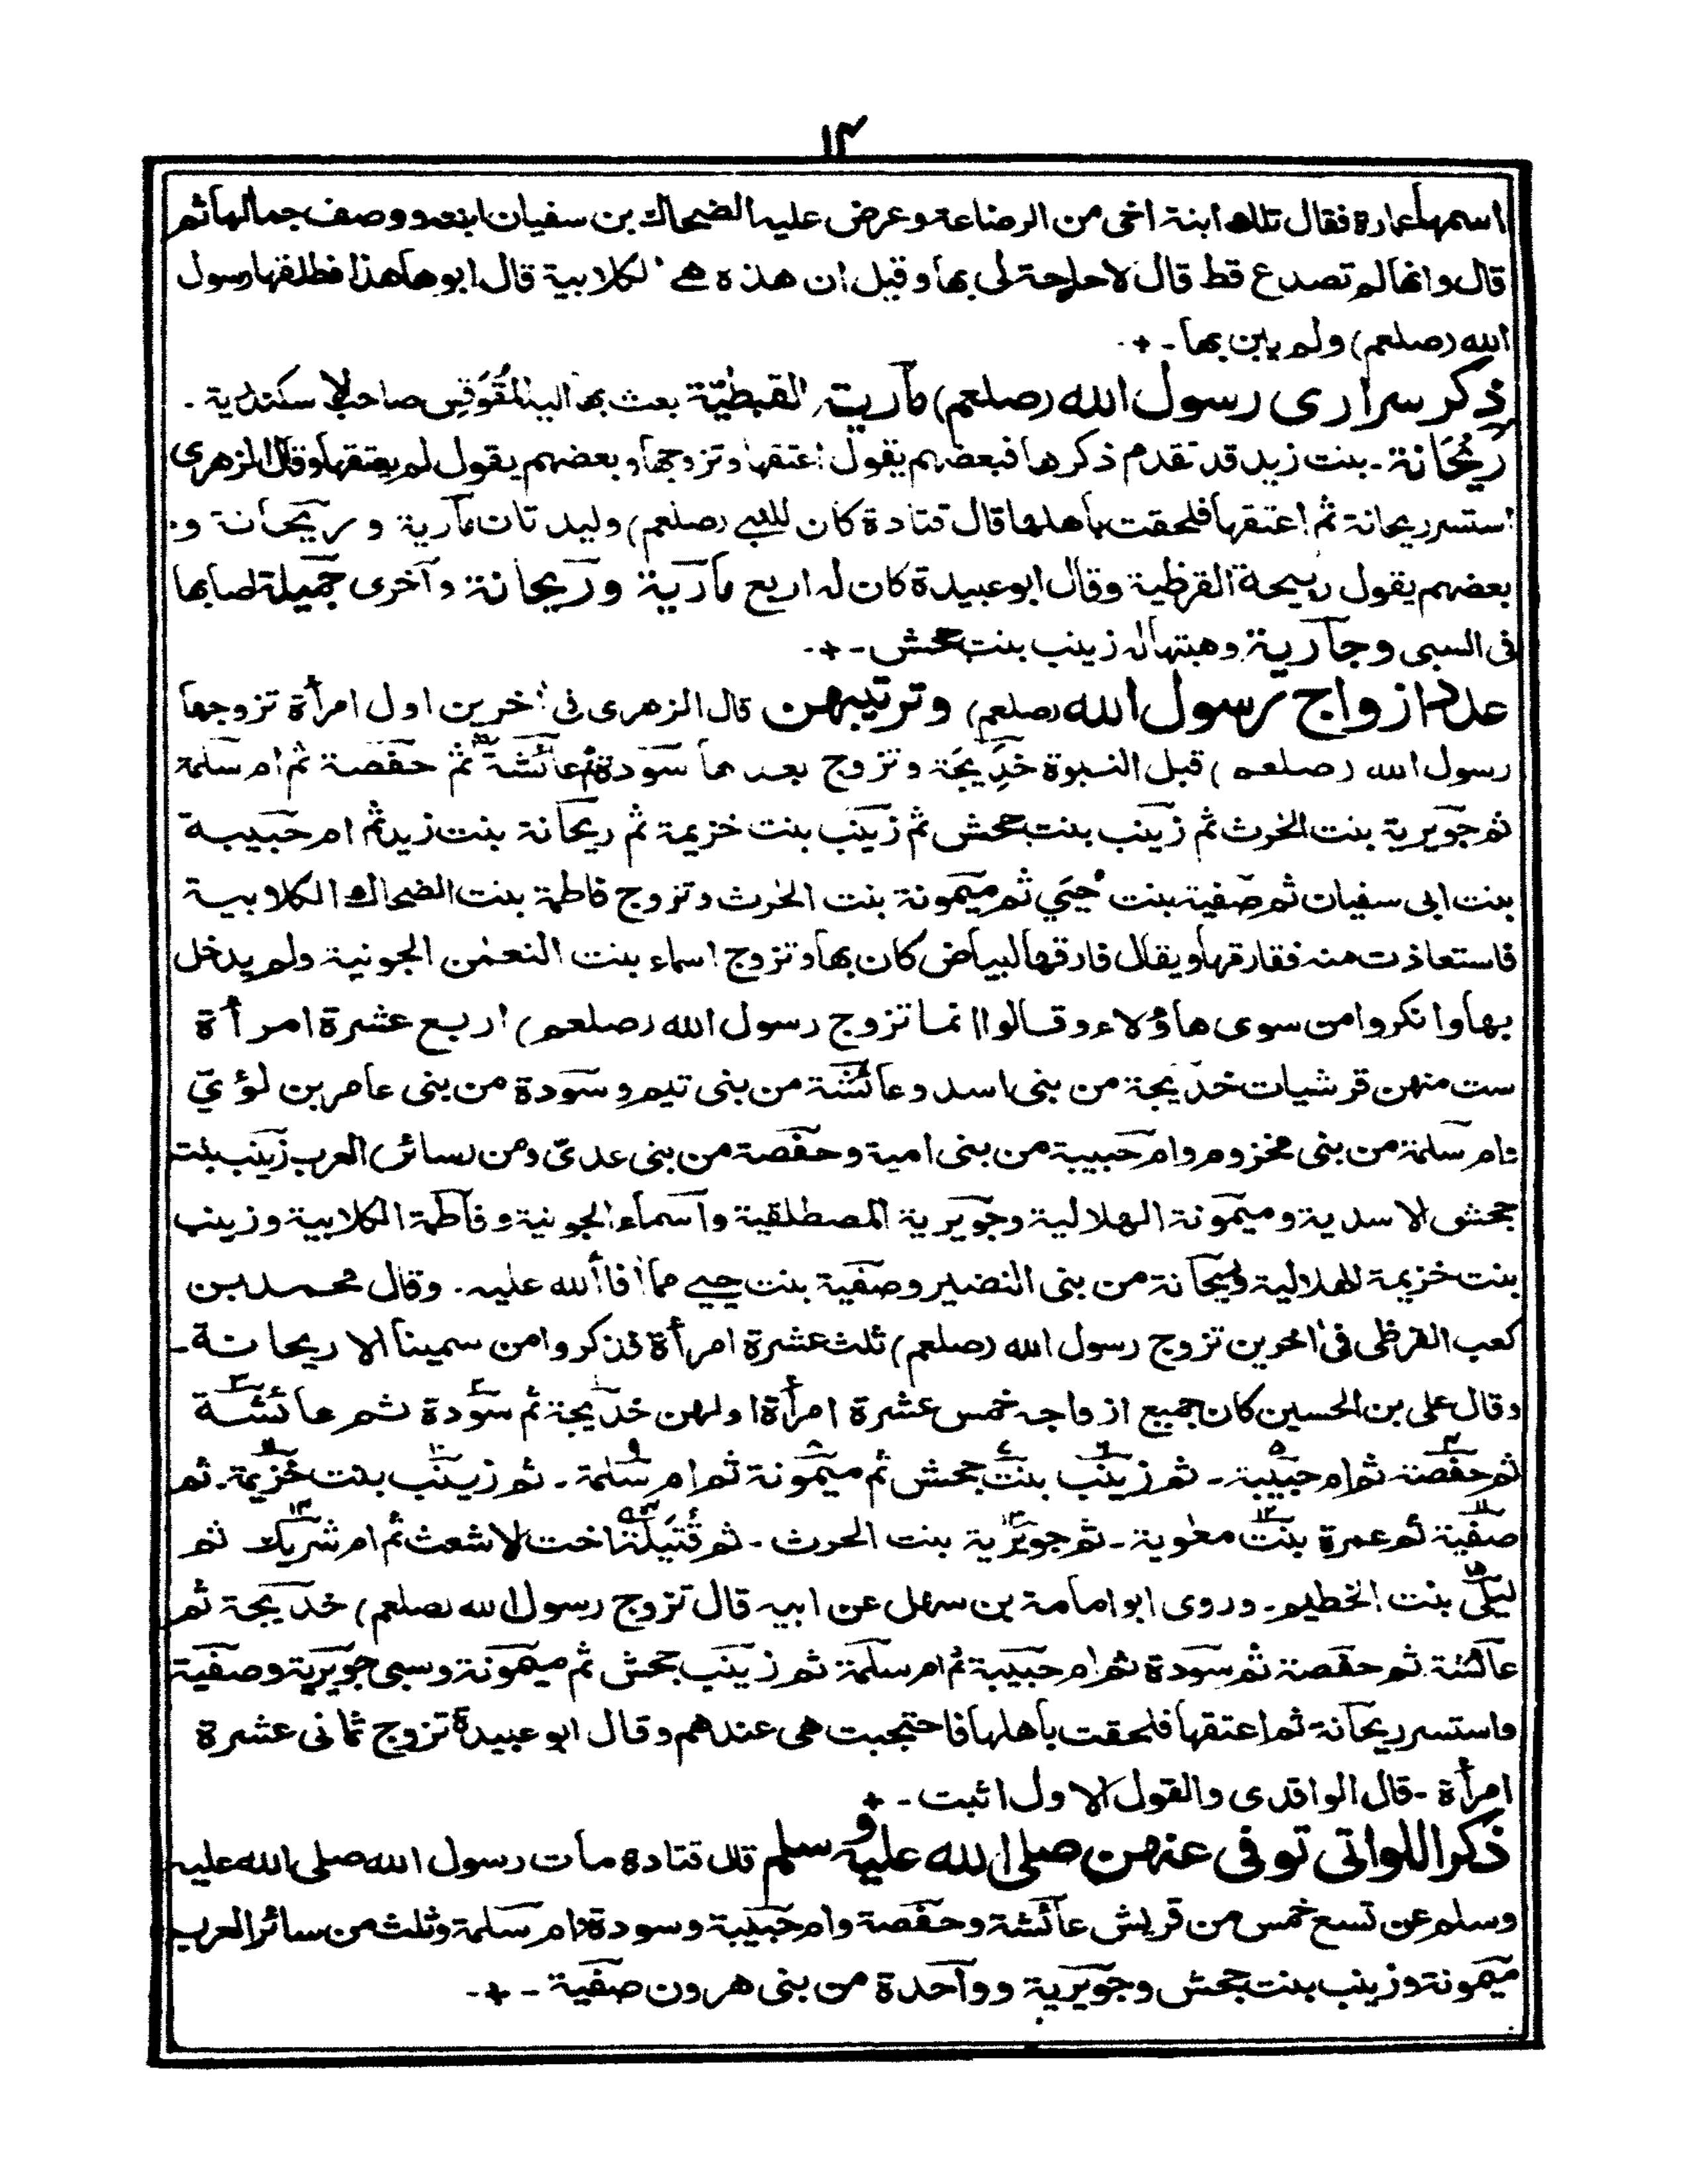 ١٣
اسمها عمارة فقال تلك ابنة اخى من الرضاعة وعرض عليه الضحاك بن سفيان ابنته ووصف جمالها ثم
قال وانها لم تصدع قط قال لا حاجة لى بها وقيل ان هذه هے الكلابية قال ابوها هذا فطلقها رسول
الله (صلعم) ولم يابن بها - + -
ذكر سرارى رسول الله (صلعم) مارية القبطيّة بعث بها اليه المُقَوقِس صاحب الاسكندرية -
رَيْحَانة - بنت زيد قد تقدم ذكرها فبعضهم يقول اعتقها وتزوجها وبعضهم يقول لم يعتقها وقال الزهرى
استسر ريحانة ثم اعتقها فلحقت باهلها قال قتادة كان للنبى (صلعم) وليدتان مارية و ريحانة و
بعضهم يقول ربيحة القرظية وقال ابو عبيدة كان له اربع مارية وريحانة وآخرى جميلة اصابها
فى السبى وجارية وهبتها له زينب بنت جحش - + -
عدد ازواج رسول الله (صلعم) وترتيبهن قال الزهرى فى اٰخرين اول امرأة تزوجها
رسول الله (صلعم) قبل النبوة خديجة وتزوج بعدها سودة ثم عائشة ثم حفصة ثم ام سلمة
ثم جويرية بنت الحٰرث ثم زينب بنت جحش ثم زينب بنت خزيمة ثم ريحانة بنت زيد ثم ام حبيبة
بنت ابى سفيان ثم صفية بنت حُيَي ثم ميمونة بنت الحٰرث وتزوج فاطمة بنت الضحاك الكلابية
فاستعاذت منه ففارقها ويقال فارقها لبياض كان بها وتزوج اسماء بنت النعمٰن الجونية ولم يدخل
بها وانكروا من سوى هاؤلاء وقالوا انما تزوج رسول الله (صلعم) اربع عشرة امرأة
ست منهن قرشيات خديجة من بنى اسد وعائشة من بنى تيم وسودة من بنى عامر بن لؤيّ
وام سلمة من بنى مخزوم وام حبيبة من بنى امية وحفصة من بنى عدىّ ومن (سائر) العرب زينب بنت
جحش الاسدية وميمونة الهلالية وجويرية المصطلقية واسماء الجونية وفاطمة الكلابية وزينب
بنت خزيمة الهلالية وريحانة من بنى النضير وصفية بنت حيى مما افاأ الله عليه . وقال محمد بن
كعب القرظى فى اٰخرين تزوج رسول الله (صلعم) ثلث عشرة امرأة فذكروا من سمينا الا ريحانة -
وقال على بن الحسين كان جميع ازواجه خمس عشرة امرأة اولهن خديجة ثم سودة ثم عائشة
ثم حفصة ثم ام حبيبة - ثم زينب بنت جحش ثم ميمونة ثم ام سلمة - ثم زينب بنت خزيمة - ثم
صفية ثم عمرة بنت معٰوية - ثم جويرية بنت الحرث - ثم قُتَيلَة اخت الاشعث ثم ام شريك ثم
ليلى بنت الخطيم - وروى ابو امامة بن سهل عن ابيه قال تزوج رسول الله (صلعم) خديجة ثم
عائشة ثم حفصة ثم سودة ثم ام حبيبة ثم ام سلمة ثم زينب جحش ثم ميمونة وسبى جويرية وصفية
واستسر ريحانة ثم اعتقها فلحقت باهلها فاحتجبت هى عندهم وقال ابو عبيدة تزوج ثمانى عشرة
امرأة - قال الواقدى والقول الاول اثبت - +
ذكر اللواتى توفى عنهن صلى الله عليه وسلم قال قتادة مات رسول الله صلى الله عليه
وسلم عن تسع خمس من قريش عائشة وحفصة وام حبيبة وسودة وام سلمة وثلث من سائر العرب
ميمونة وزينب بنت جحش وجويرية وواحدة من بنى هرون صفية - + -